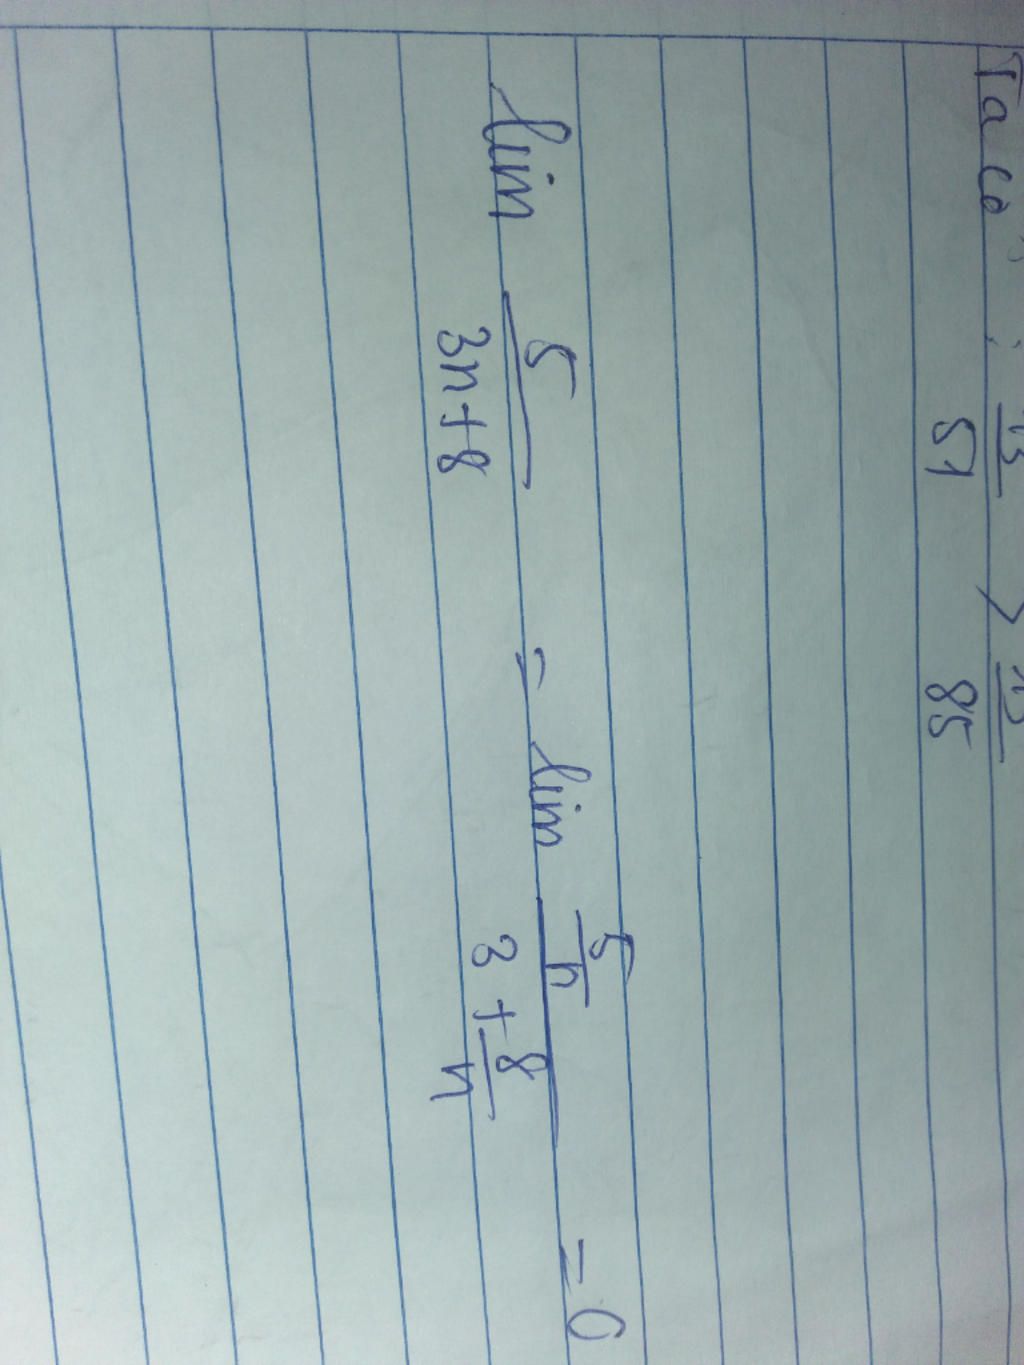 Ta có : 13/51 > 13/85
lim 5/(3n+8) = lim (5/n)/(3 + 8/n) = 0